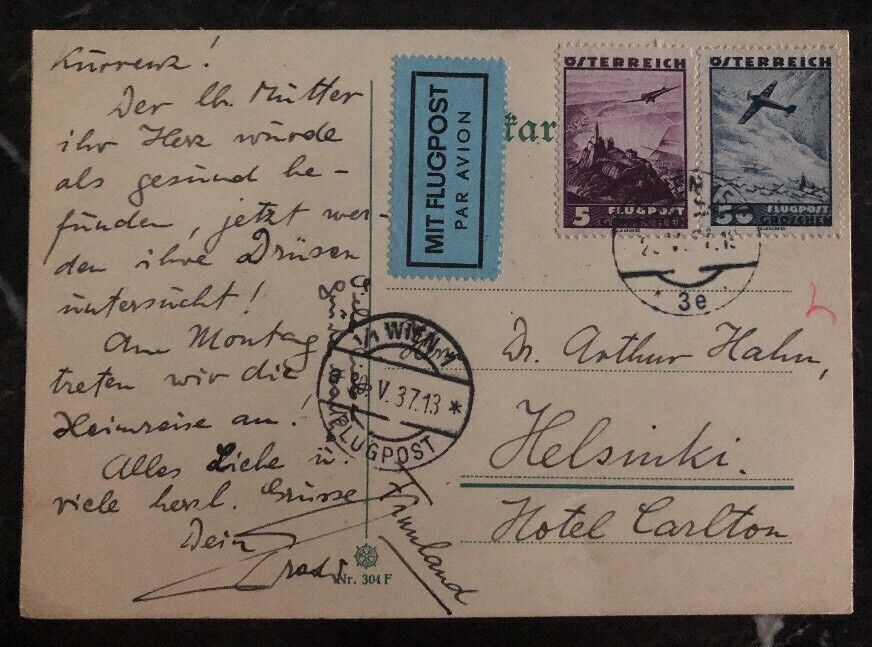 Kurrenz!
Der lb. Mutter
ihr Herz wurde
als gesund be-
funden, jetzt wer-
den ihre Drüsen
untersucht!
Am Montag
treten wir die
Heimreise an!
Alles Liebe u.
viele herzl. Grüsse
Dein
Nr. 304 F
MIT FLUGPOST
PAR AVION
kar
ÖSTERREICH
5 FLUGPOST
GROSCHEN
ÖSTERREICH
50 FLUGPOST
GROSCHEN
3e
1/1 WIEN 1
V.37.13 *
FLUGPOST
Herrn
Dr. Arthur Hahn,
Helsinki.
Hotel Carlton
Finnland